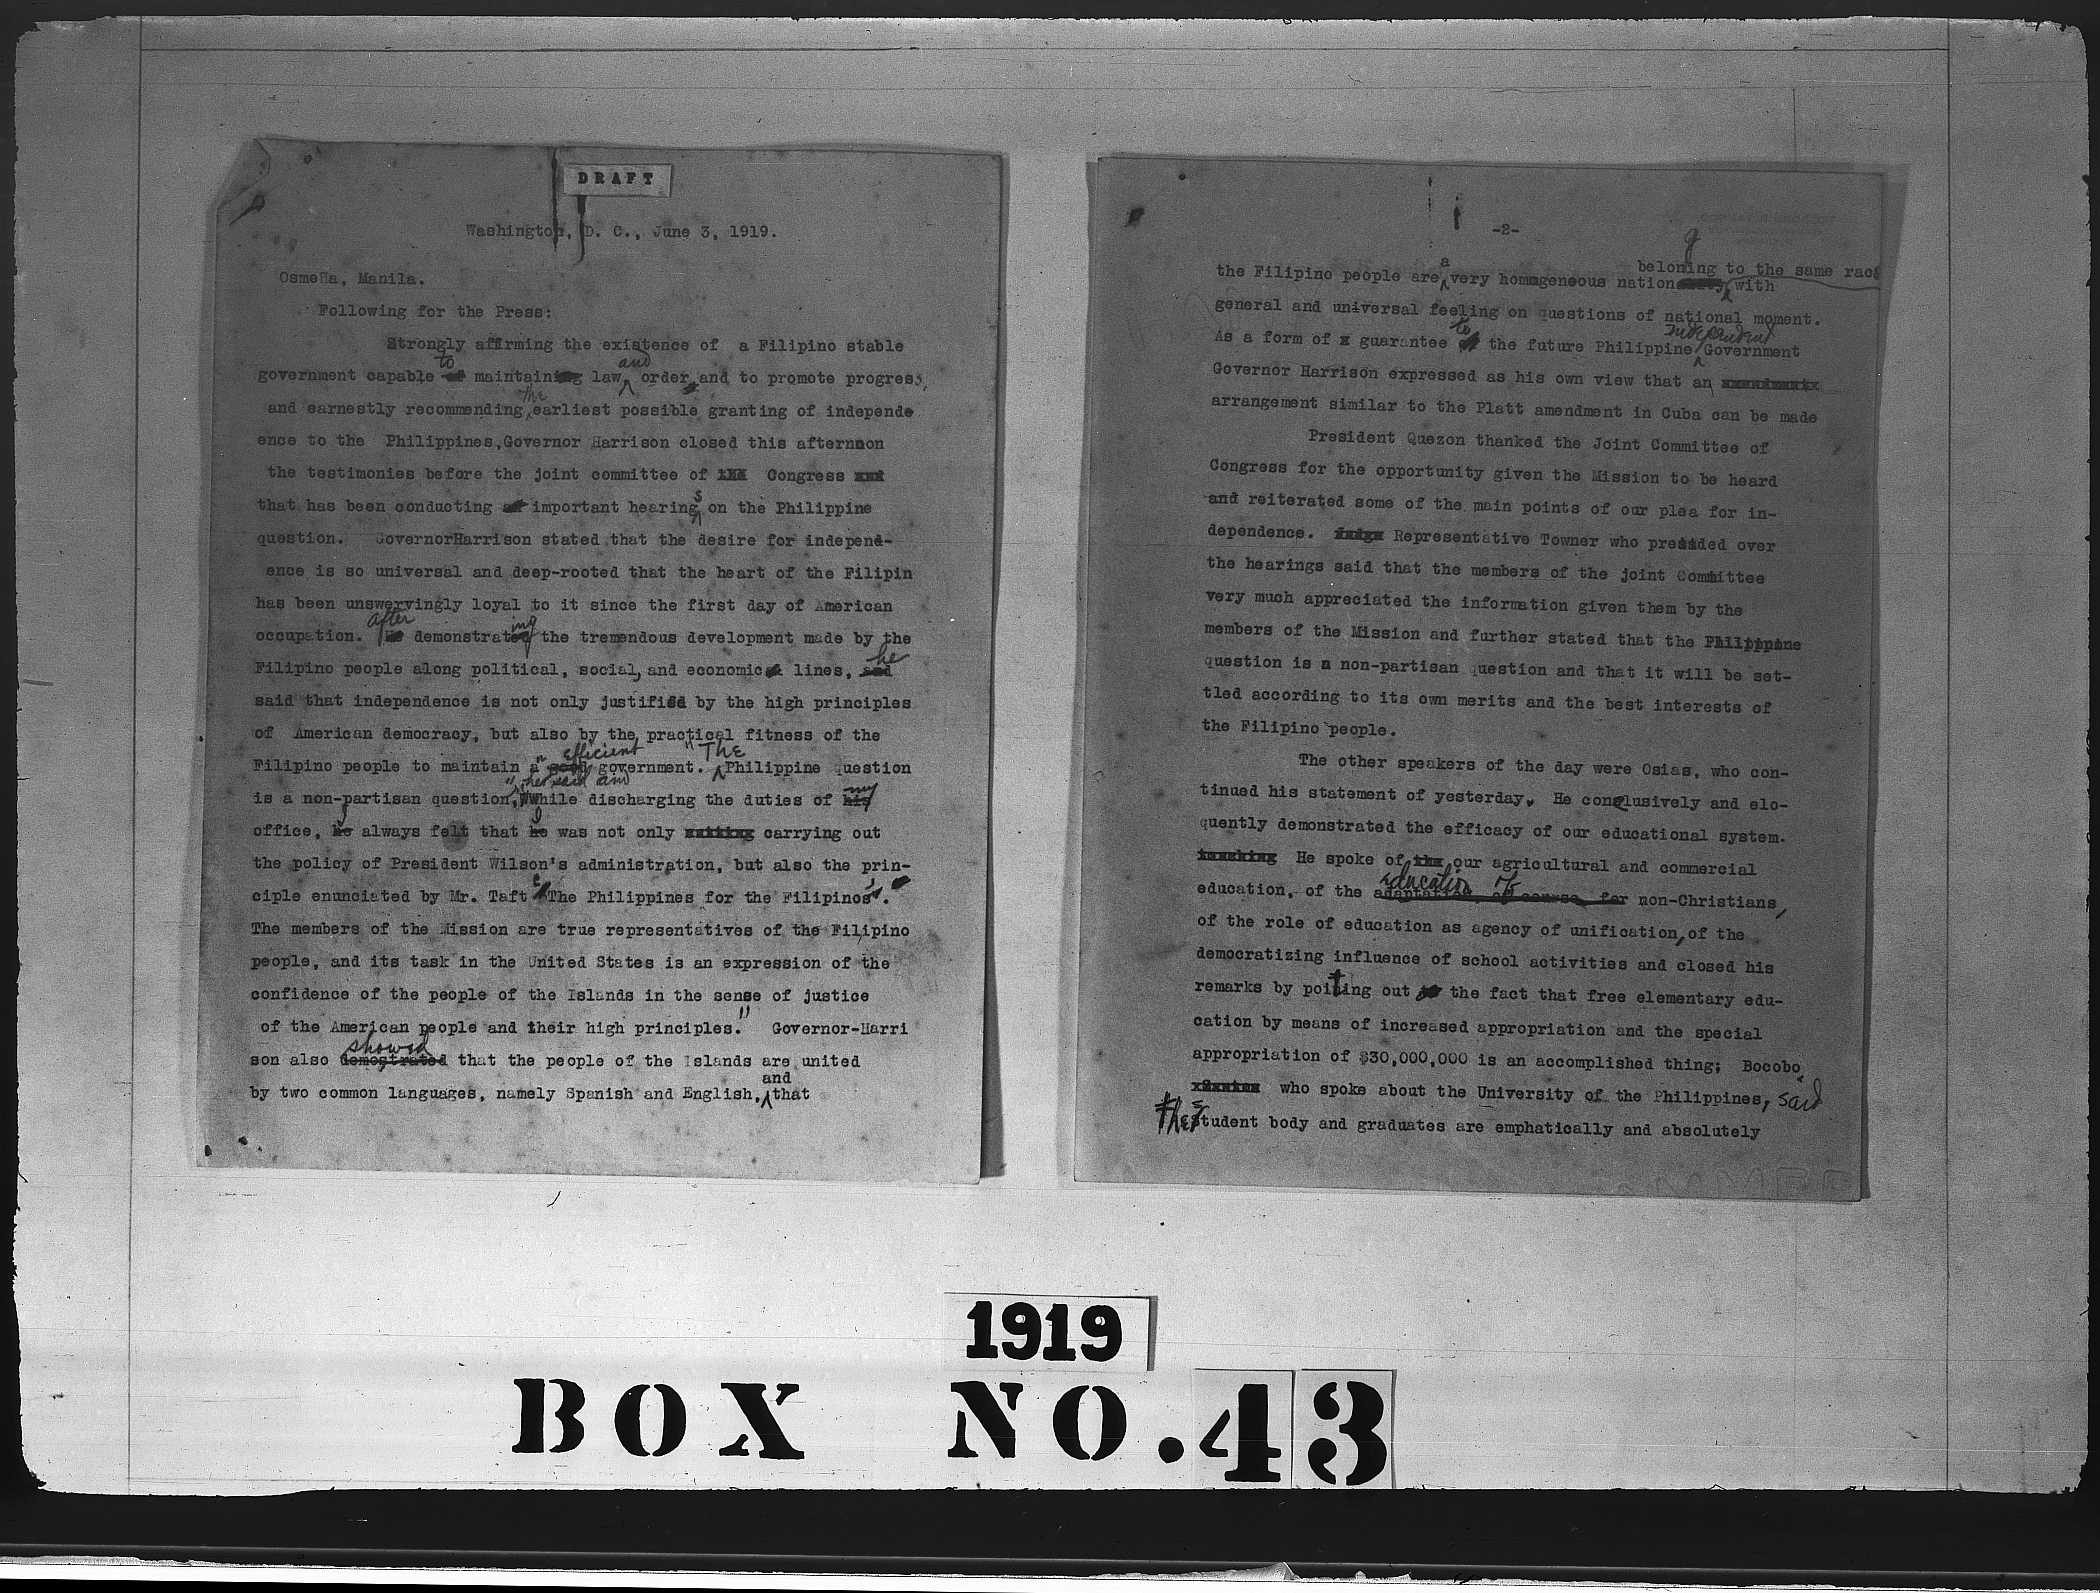 DRAFT
Washington, D. C., June 3, 1919.
Osmeña, Manila.
Following for the Press:
Strongly affirming the existence of a Filipino stable
government capable to maintain law and order and to promote progress,
and earnestly recommending the earliest possible granting of independe
ence to the Philippines, Governor Harrison closed this afternnon
the testimonies before the joint committee of Congress
that has been conducting important hearings on the Philippine
question. GovernorHarrison stated that the desire for independ-
ence is so universal and deep-rooted that the heart of the Filipin
has been unswervingly loyal to it since the first day of American
occupation. after demonstrating the tremendous development made by the
Filipino people along political, social, and economic lines, he
said that independence is not only justified by the high principles
of American democracy, but also by the practical fitness of the
Filipino people to maintain an efficient government. "The Philippine question
is a non-partisan question," he said and "While discharging the duties of my
office, I always felt that I was not only carrying out
the policy of President Wilson's administration, but also the prin-
ciple enunciated by Mr. Taft 'The Philippines for the Filipinos'.
The members of the Mission are true representatives of the Filipino
people, and its task in the United States is an expression of the
confidence of the people of the Islands in the sense of justice
of the American people and their high principles." Governor-Harri
son also showed that the people of the Islands are united
by two common languages, namely Spanish and English, and that
-2-
the Filipino people are a very homogeneous nation belonging to the same race with
general and universal feeling on questions of national moment.
As a form of guarantee to the future Philippine independent Government
Governor Harrison expressed as his own view that an
arrangement similar to the Platt amendment in Cuba can be made
President Quezon thanked the Joint Committee of
Congress for the opportunity given the Mission to be heard
and reiterated some of the main points of our plea for in-
dependence. Representative Towner who presided over
the hearings said that the members of the joint Committee
very much appreciated the information given them by the
members of the Mission and further stated that the Philippine
question is a non-partisan question and that it will be set-
tled according to its own merits and the best interests of
the Filipino people.
The other speakers of the day were Osias, who con-
tinued his statement of yesterday. He conclusively and elo-
quently demonstrated the efficacy of our educational system.
He spoke of our agricultural and commercial
education, of the education of non-Christians,
of the role of education as agency of unification, of the
democratizing influence of school activities and closed his
remarks by poitting out the fact that free elementary edu-
cation by means of increased appropriation and the special
appropriation of $30,000,000 is an accomplished thing; Bocobo
who spoke about the University of the Philippines, said
the student body and graduates are emphatically and absolutely
1919
BOX NO. 43